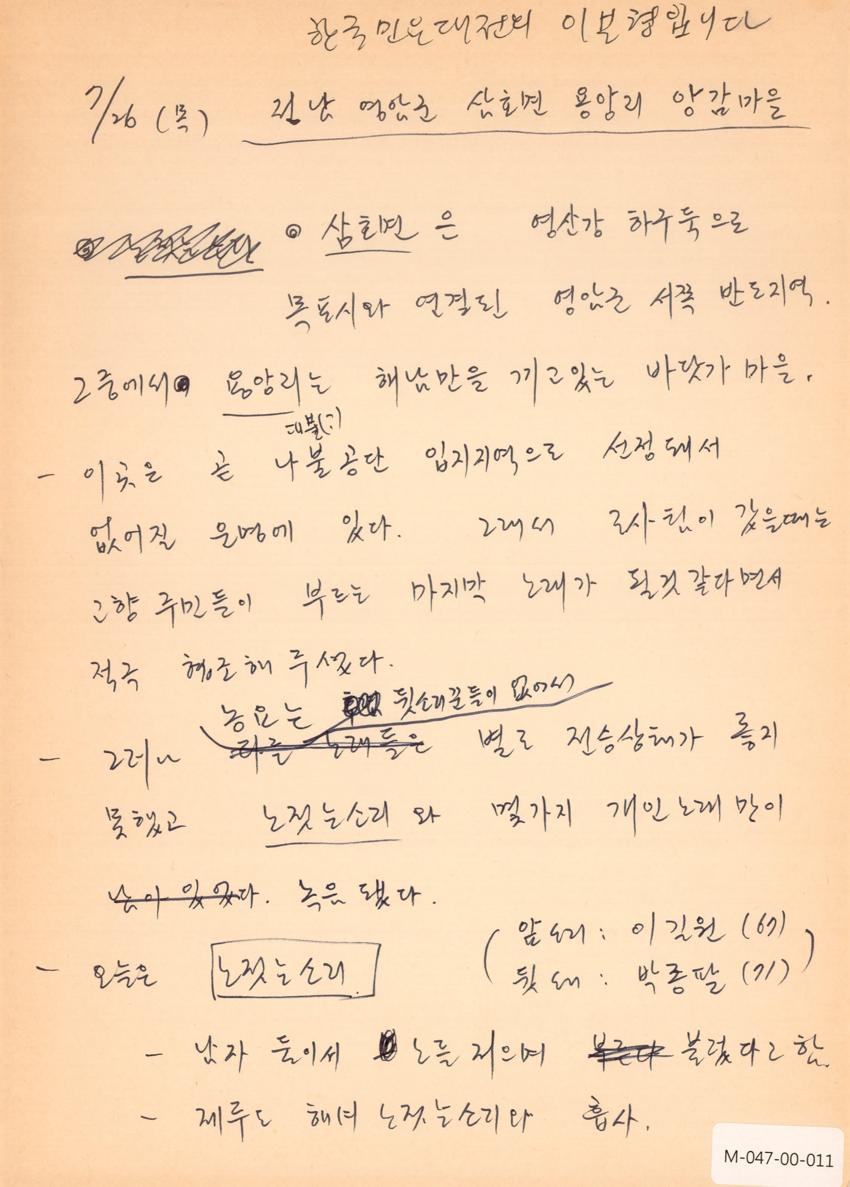 한국민요대전의 이보형입니다
7/26 (목) 전남 영암군 삼호면 용앙리 앙감마을
◎ 삼호면은 영산강 하구둑으로
목포시와 연결된 영암군 서쪽 반도지역.
그중에서 용앙리는 해남만을 끼고있는 바닷가 마을.
대불(?)
- 이곳은 곧 나불공단 입지지역으로 선정돼서
없어질 운명에 있다. 그래서 조사팀이 갔을때는
고향 주민들이 부르는 마지막 노래가 될것 같다면서
적극 협조해 주셨다.
농요는 뒷소리꾼들이 없어서
- 그러나 노래들은 별로 전승상태가 좋지
못했고 노젓는소리와 몇가지 개인노래만이
남아 있었다. 녹음됐다.
(앞소리 : 이길원 (67)
- 오늘은 노젓는소리
뒷소리 : 박종팔 (71))
- 남자 둘이서 노를 저으며 부른다 불렀다고 함.
- 제주도 해녀 노젓는소리와 흡사.
M-047-00-011